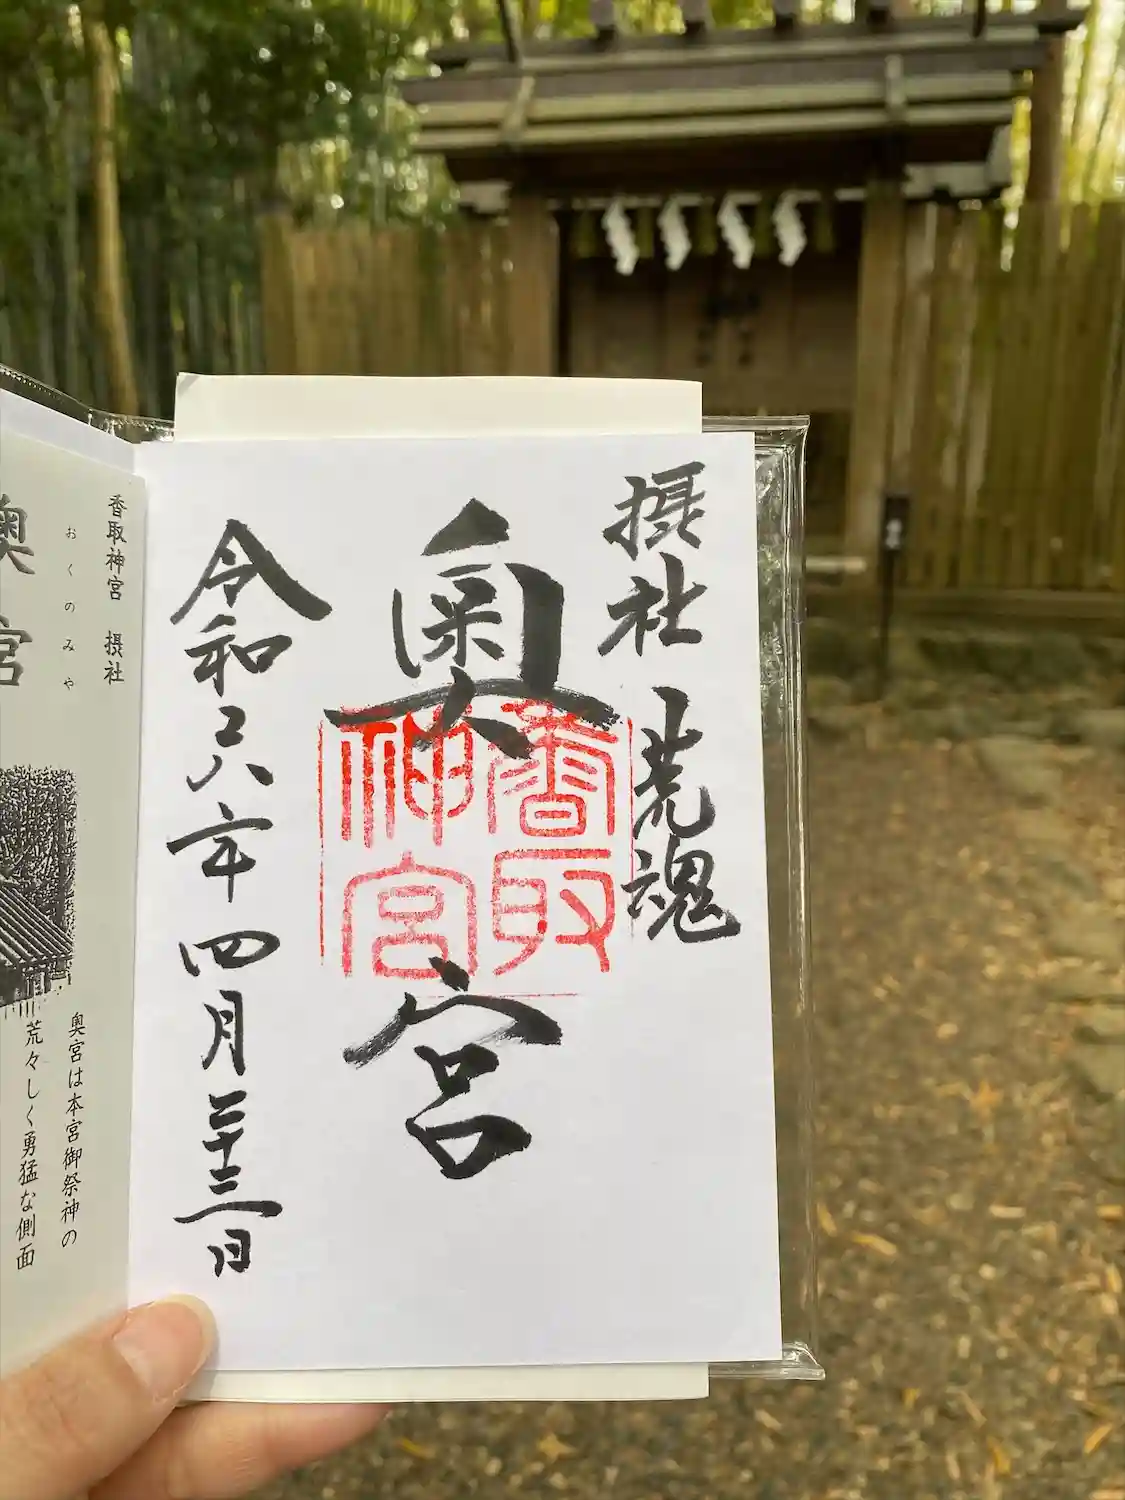 摂社 荒魂
奥宮
香取神宮
令和六年四月二十三日
香取神宮 摂社
おくのみや
奥宮
奥宮は本宮御祭神の
荒々しく勇猛な側面